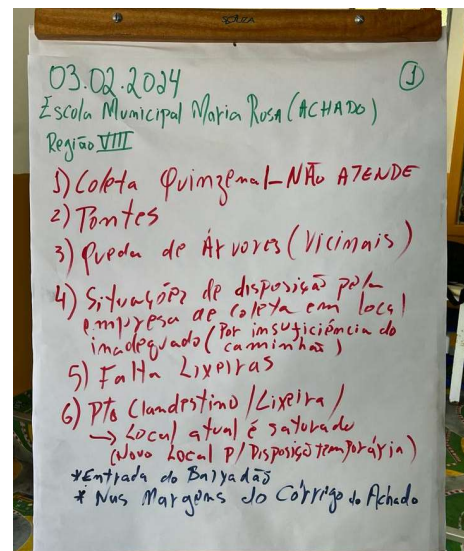 03.02.2024
①
Escola Municipal Maria Rosa (ACHADO)
Região VIII
1) Coleta Quinzenal - NÃO ATENDE
2) Pontes
3) Queda de Árvores (Vicinais)
4) Situações de disposição pela
empresa de coleta em local
inadequado (Por insuficiência do
caminhão)
5) Falta Lixeiras
6) Pto Clandestino / Lixeira /
→ Local atual é saturado
(Novo Local P/ Disposição temporária)
*Entrada do
* Nas Margens do Córrigo do Achado